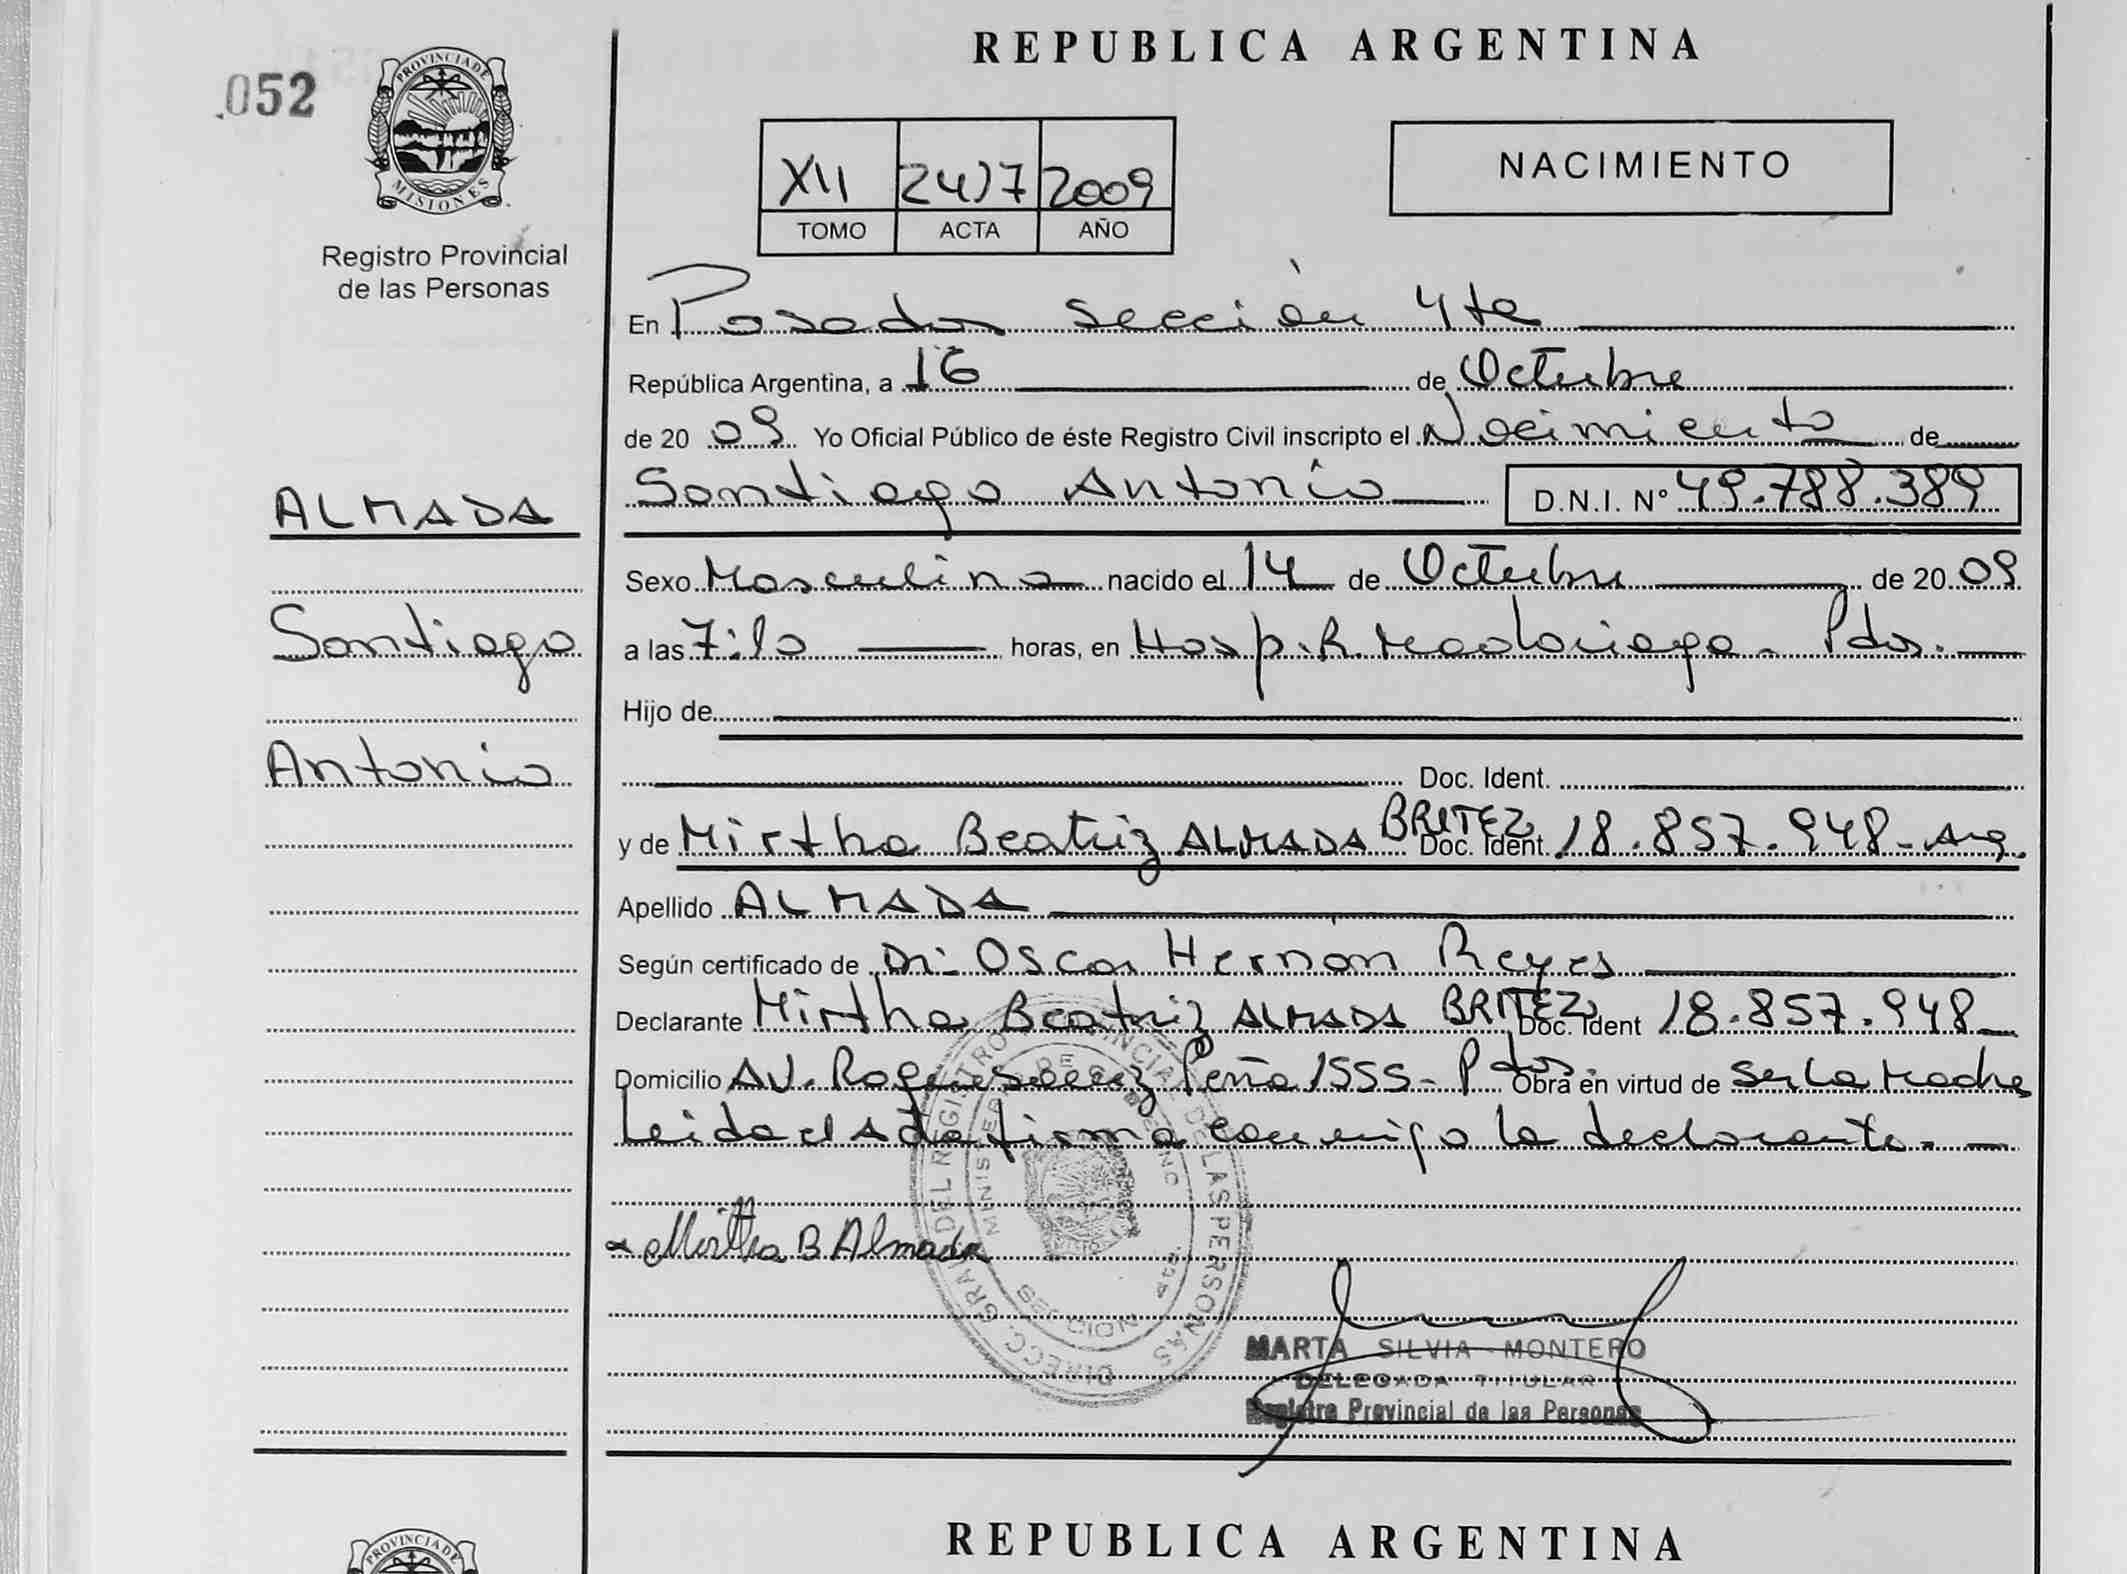 REPUBLICA ARGENTINA
052
PROVINCIA DE
MISIONES
Registro Provincial
de las Personas
NACIMIENTO
XII 2417 2009
TOMO ACTA AÑO
En Posadas Sección 4ta
República Argentina, a 16 de Octubre
de 20 09 Yo Oficial Público de éste Registro Civil inscripto el Nacimiento de
ALMADA
Santiago Antonio D.N.I. Nº 49.788.389
Sexo Masculino nacido el 14 de Octubre de 20 09
Santiago
a las 7:10 horas, en Hosp. R. Madariaga - Pdas.
Hijo de
Antonio
Doc. Ident.
y de Mirtha Beatriz ALMADA BRITEZ Doc. Ident. 18.857.948 - Arg.
Apellido ALMADA
Según certificado de Dr. Oscar Hernan Reyes
Declarante Mirtha Beatriz ALMADA BRITEZ Doc. Ident 18.857.948
Domicilio AV. Roque Saenz Peña 1555 - Pdas Obra en virtud de ser la Madre
Leida el Acta firma conmigo la declarante.
Mirtha B Almada
DIRECC. GRAL DEL REGISTRO PROVINCIAL DE LAS PERSONAS
MINISTERIO DE GOBIERNO
SECCION 4ta.
MARTA SILVIA MONTERO
DELEGADA TITULAR
Registro Provincial de las Personas
REPUBLICA ARGENTINA
PROVINCIA DE